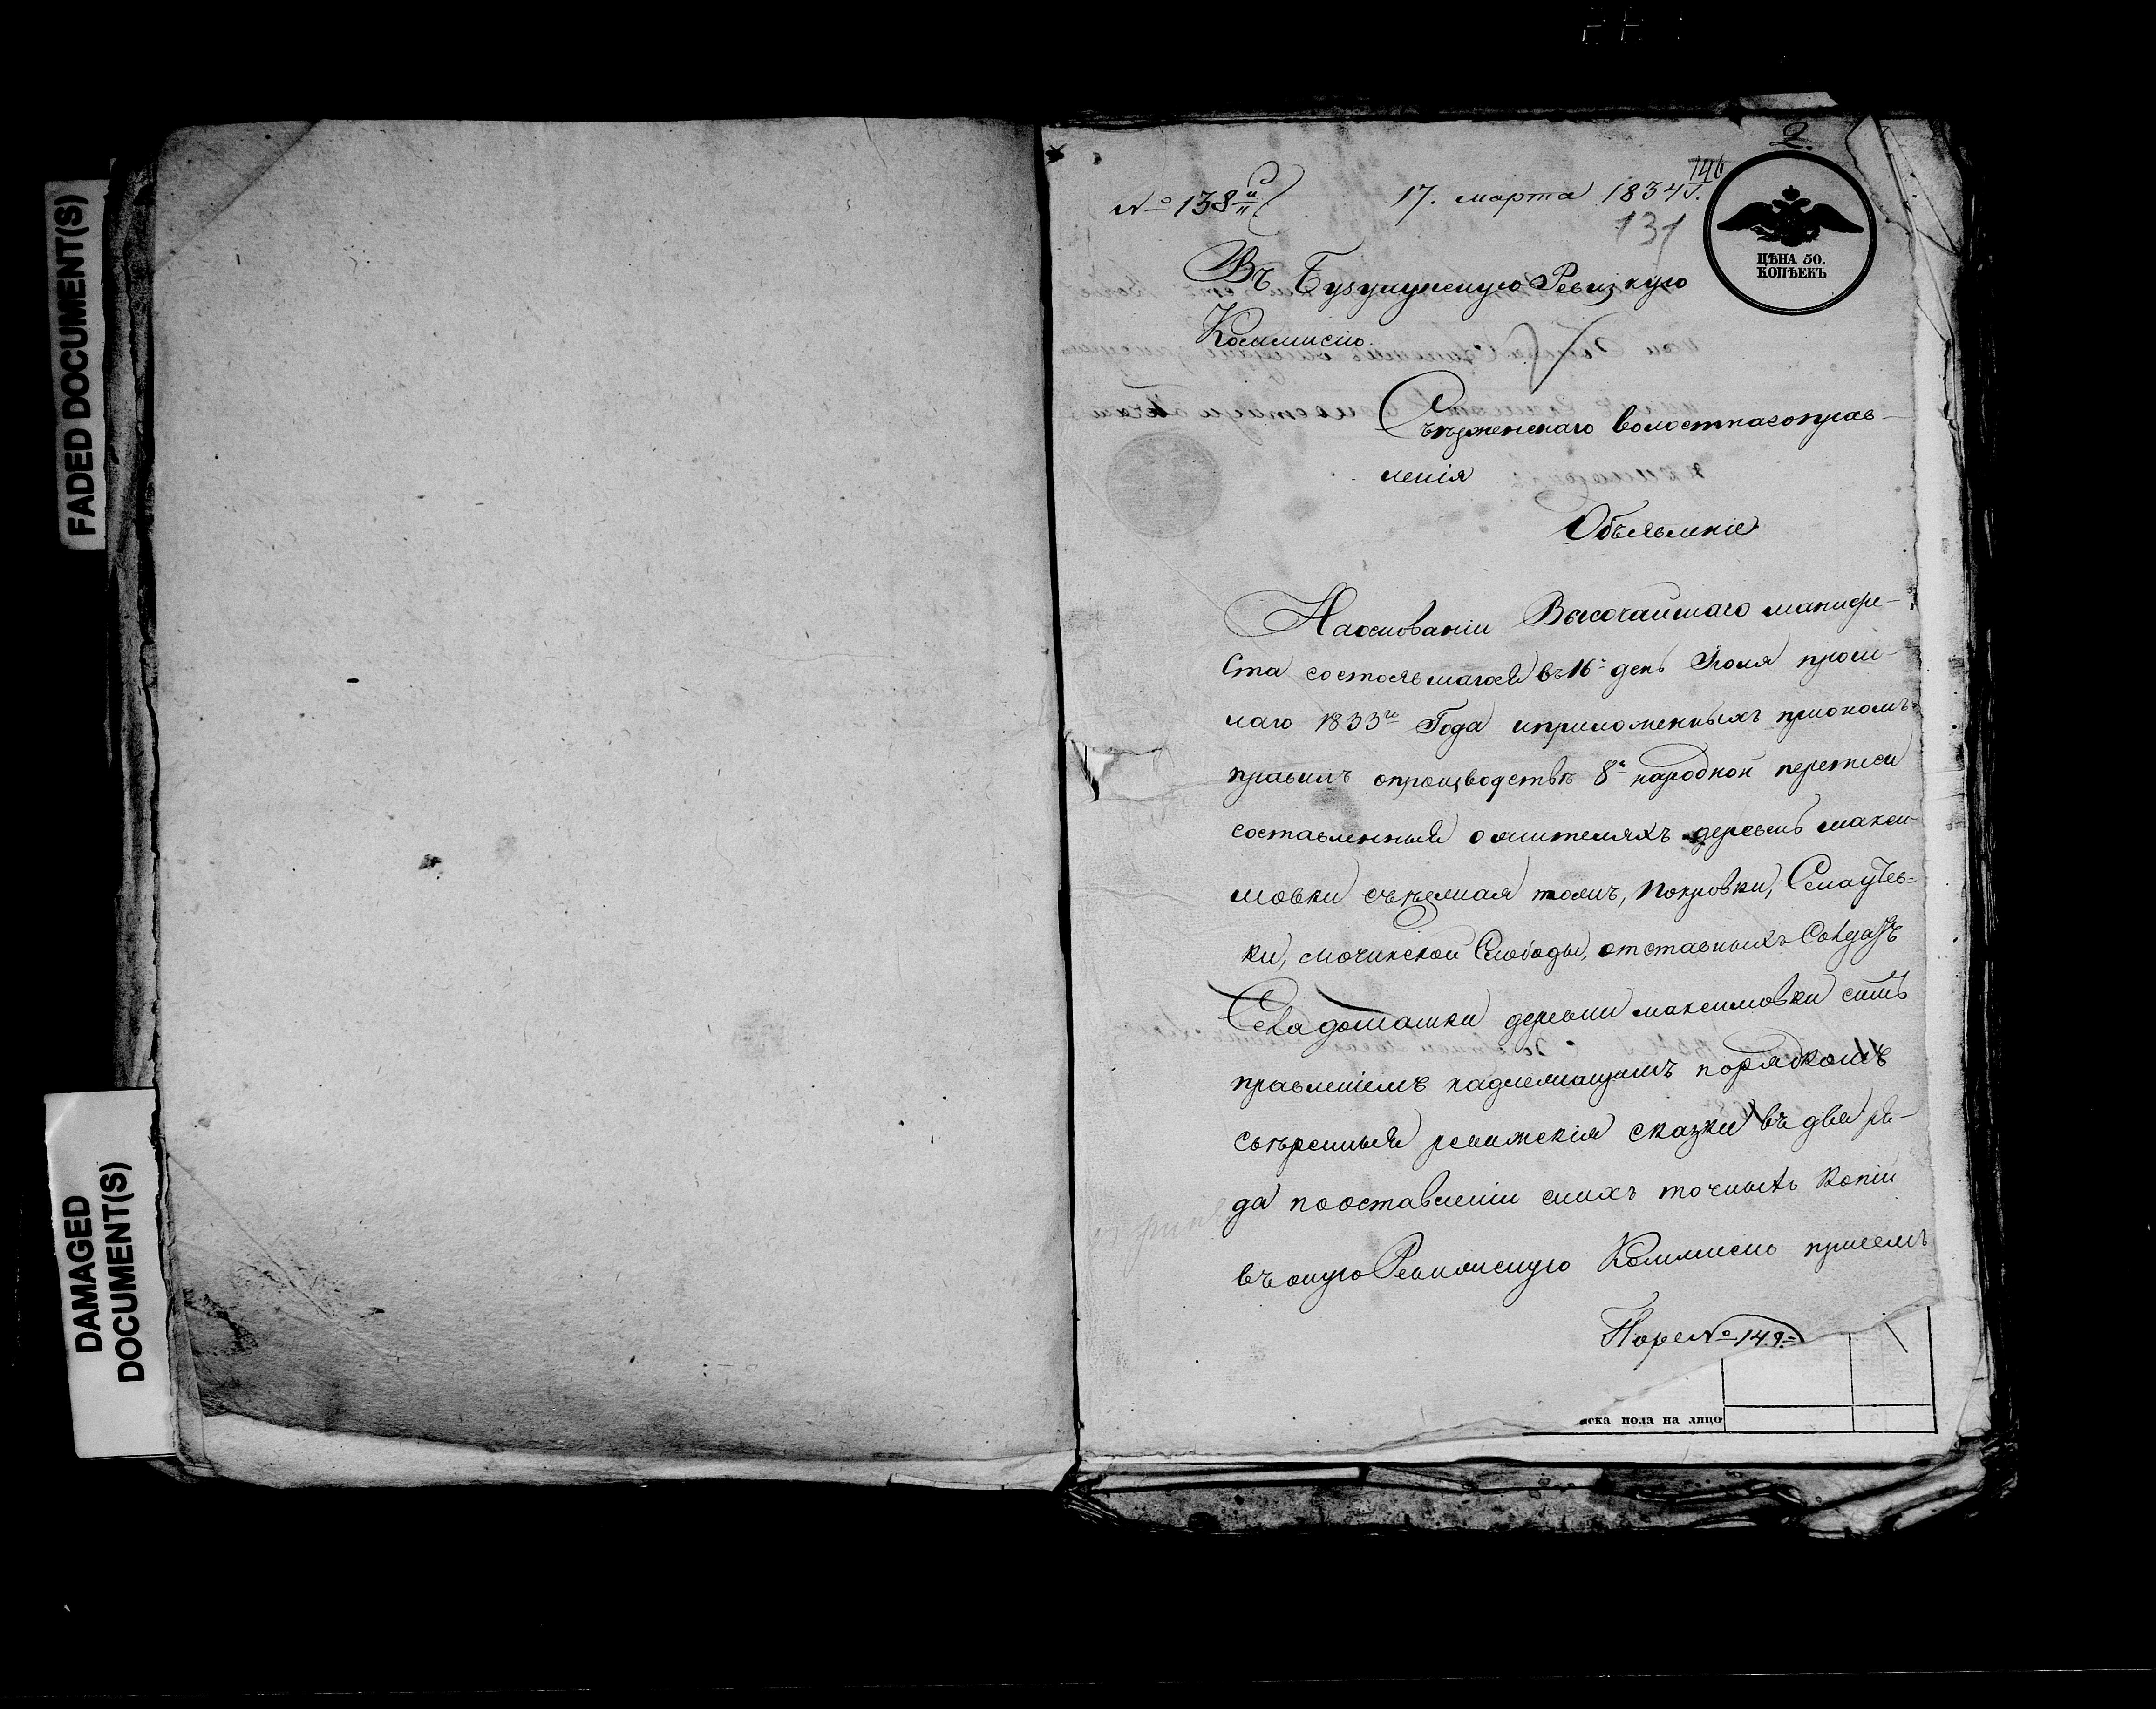 FADED DOCUMENT(S)
DAMAGED
DOCUMENT(S)
2.
146
№ 138
17. марта 1834
131
ЦѢНА 50.
КОПѢЕКЪ
Въ Бузулуцкую Ревизкую
Коммисію
волостнагоправ-
ленія
Объявленіе
Наоснованіи Высочайшаго манифе-
ста состоявшагося въ 16 день Іюня прош-
лаго 1833го Года иприложенныхъ приономъ
правилъ опроизводствѣ 8й народной переписи
составленныя ожителяхъ деревень макси-
мовки Покровки,
ки, мочинской Слободы, отставныхъ Солдатъ
деревни максимовки симъ
правленіемъ надлежащимъ порядкомъ
ревижскія сказки въ два ря-
да пооставленіи сихъ точныхъ копіи
въ оную Ревижскую Коммисію присемъ
Норе № 149
ска пола на лицо